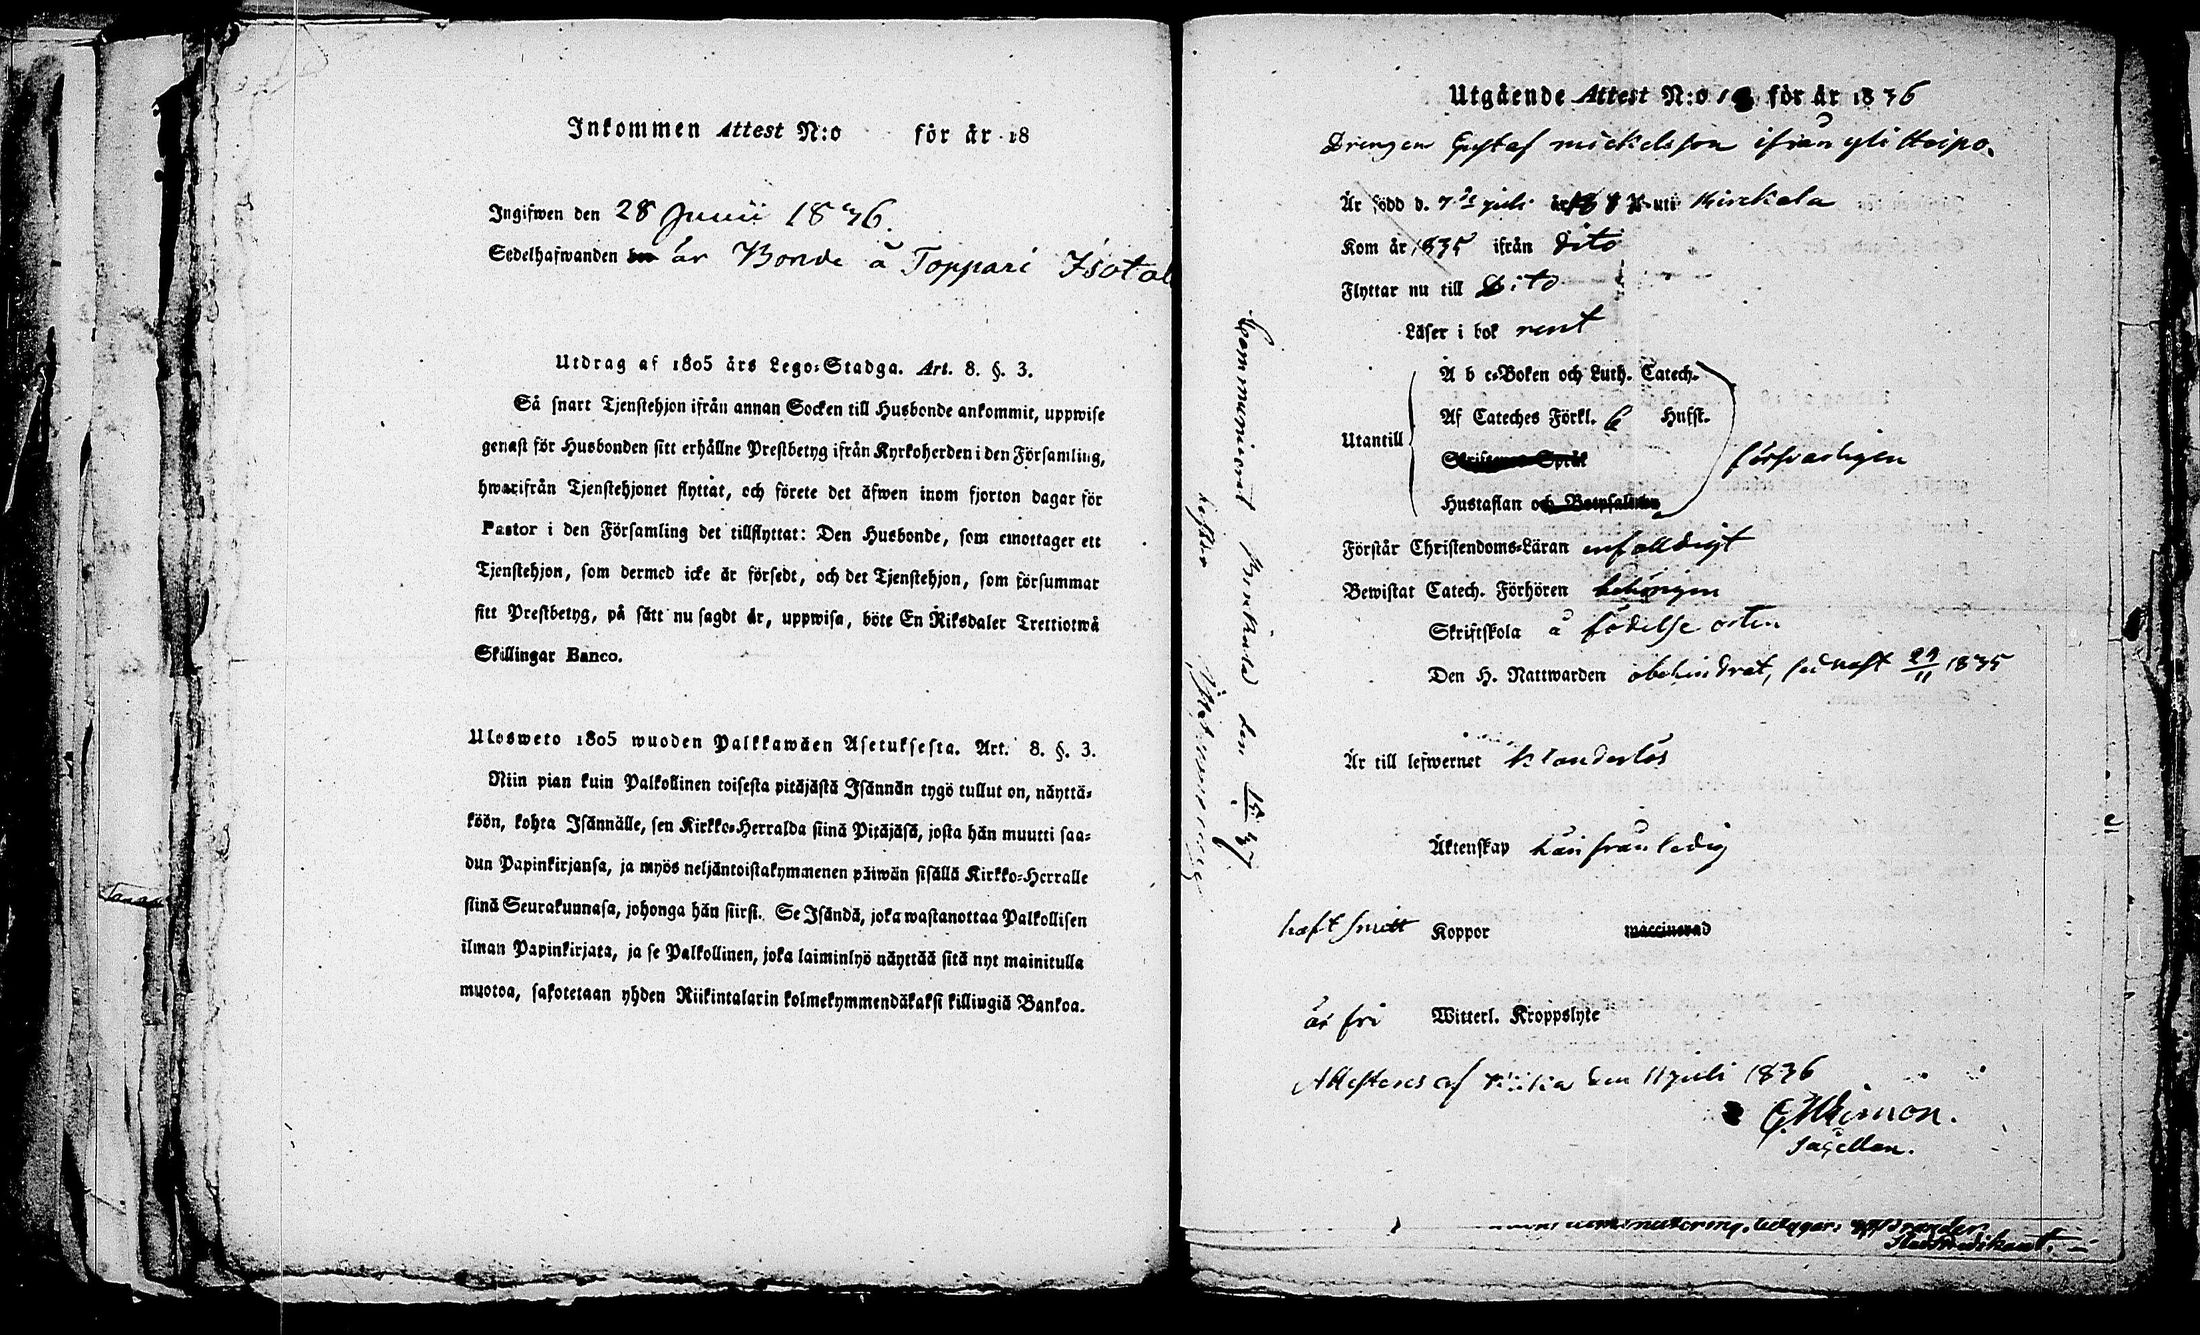 Inkommen Attest N:o för år 18
Ingifwen den 28 Junii 1836.
Sedelhafwanden är Bonde å Toppari Isotal
Utdrag af 1805 års Lego-Stadga. Art. 8. §. 3.
Så snart Tjenstehjon ifrån annan Socken till Husbonde ankommit, uppwise
genast för Husbonden sitt erhållne Prestbetyg ifrån Kyrkoherden i den Församling,
hwarifrån Tjenstehjonet flyttat, och förete det äfwen inom fjorton dagar för
Pastor i den Församling det tillflyttat: Den Husbonde, som emottager ett
Tjenstehjon, som dermed icke är försedt, och det Tjenstehjon, som försummar
sitt Prestbetyg, på sätt nu sagdt är, uppwisa, böte En Riksdaler Trettiotwå
Skillingar Banco.
Ulosweto 1805 wuoden Palkkawäen Asetuksesta. Art. 8. §. 3.
Niin pian kuin Palkollinen toisesta pitäjästä Isännän tygö tullut on, näyttä-
köön, kohta Isännälle, sen Kirkko-Herralda siinä Pitäjäsä, josta hän muutti saa-
dun Papinkirjansa, ja myös neljäntoistakymmenen päiwän sisällä Kirkko-Herralle
siinä Seurakunnasa, johonga hän siirsi. Se Isändä, joka wastanottaa Palkollisen
ilman Papinkirjata, ja se Palkollinen, joka laiminlyö näyttää sitä nyt mainitulla
muotoa, sakotetaan yhden Riikintalarin kolmekymmendäkaksi killingiä Bankoa.
Utgående Attest N:o för år 1836
Drengen Gustaf Mickelsson ifrån yli Heipo.
Är född d. 7de juli uti Kinkala
Kom år 1835 ifrån Dito
Flyttar nu till Dito
Läser i bok rent
A b c-Boken och Luth. Catech.
Af Cateches Förkl. 6 Hufst.
Utantill försvarligen
Skriftenes Språk
Hustaflan och Botpsalmen
Förstår Christendoms-Läran enfalldigt
Bewistat Catech. Förhören behörigen
Skriftskola å födelse orten
Den H. Nattwarden obehindrat, sednast 29/11 1835
Är till lefwernet klanderlös
Äktenskap härifrån ledig
haft smitt Koppor waccinerad
är fri Witterl. Kroppslyte
Attesteras af den 11 juli 1836
Sacellan.
Communicerat den